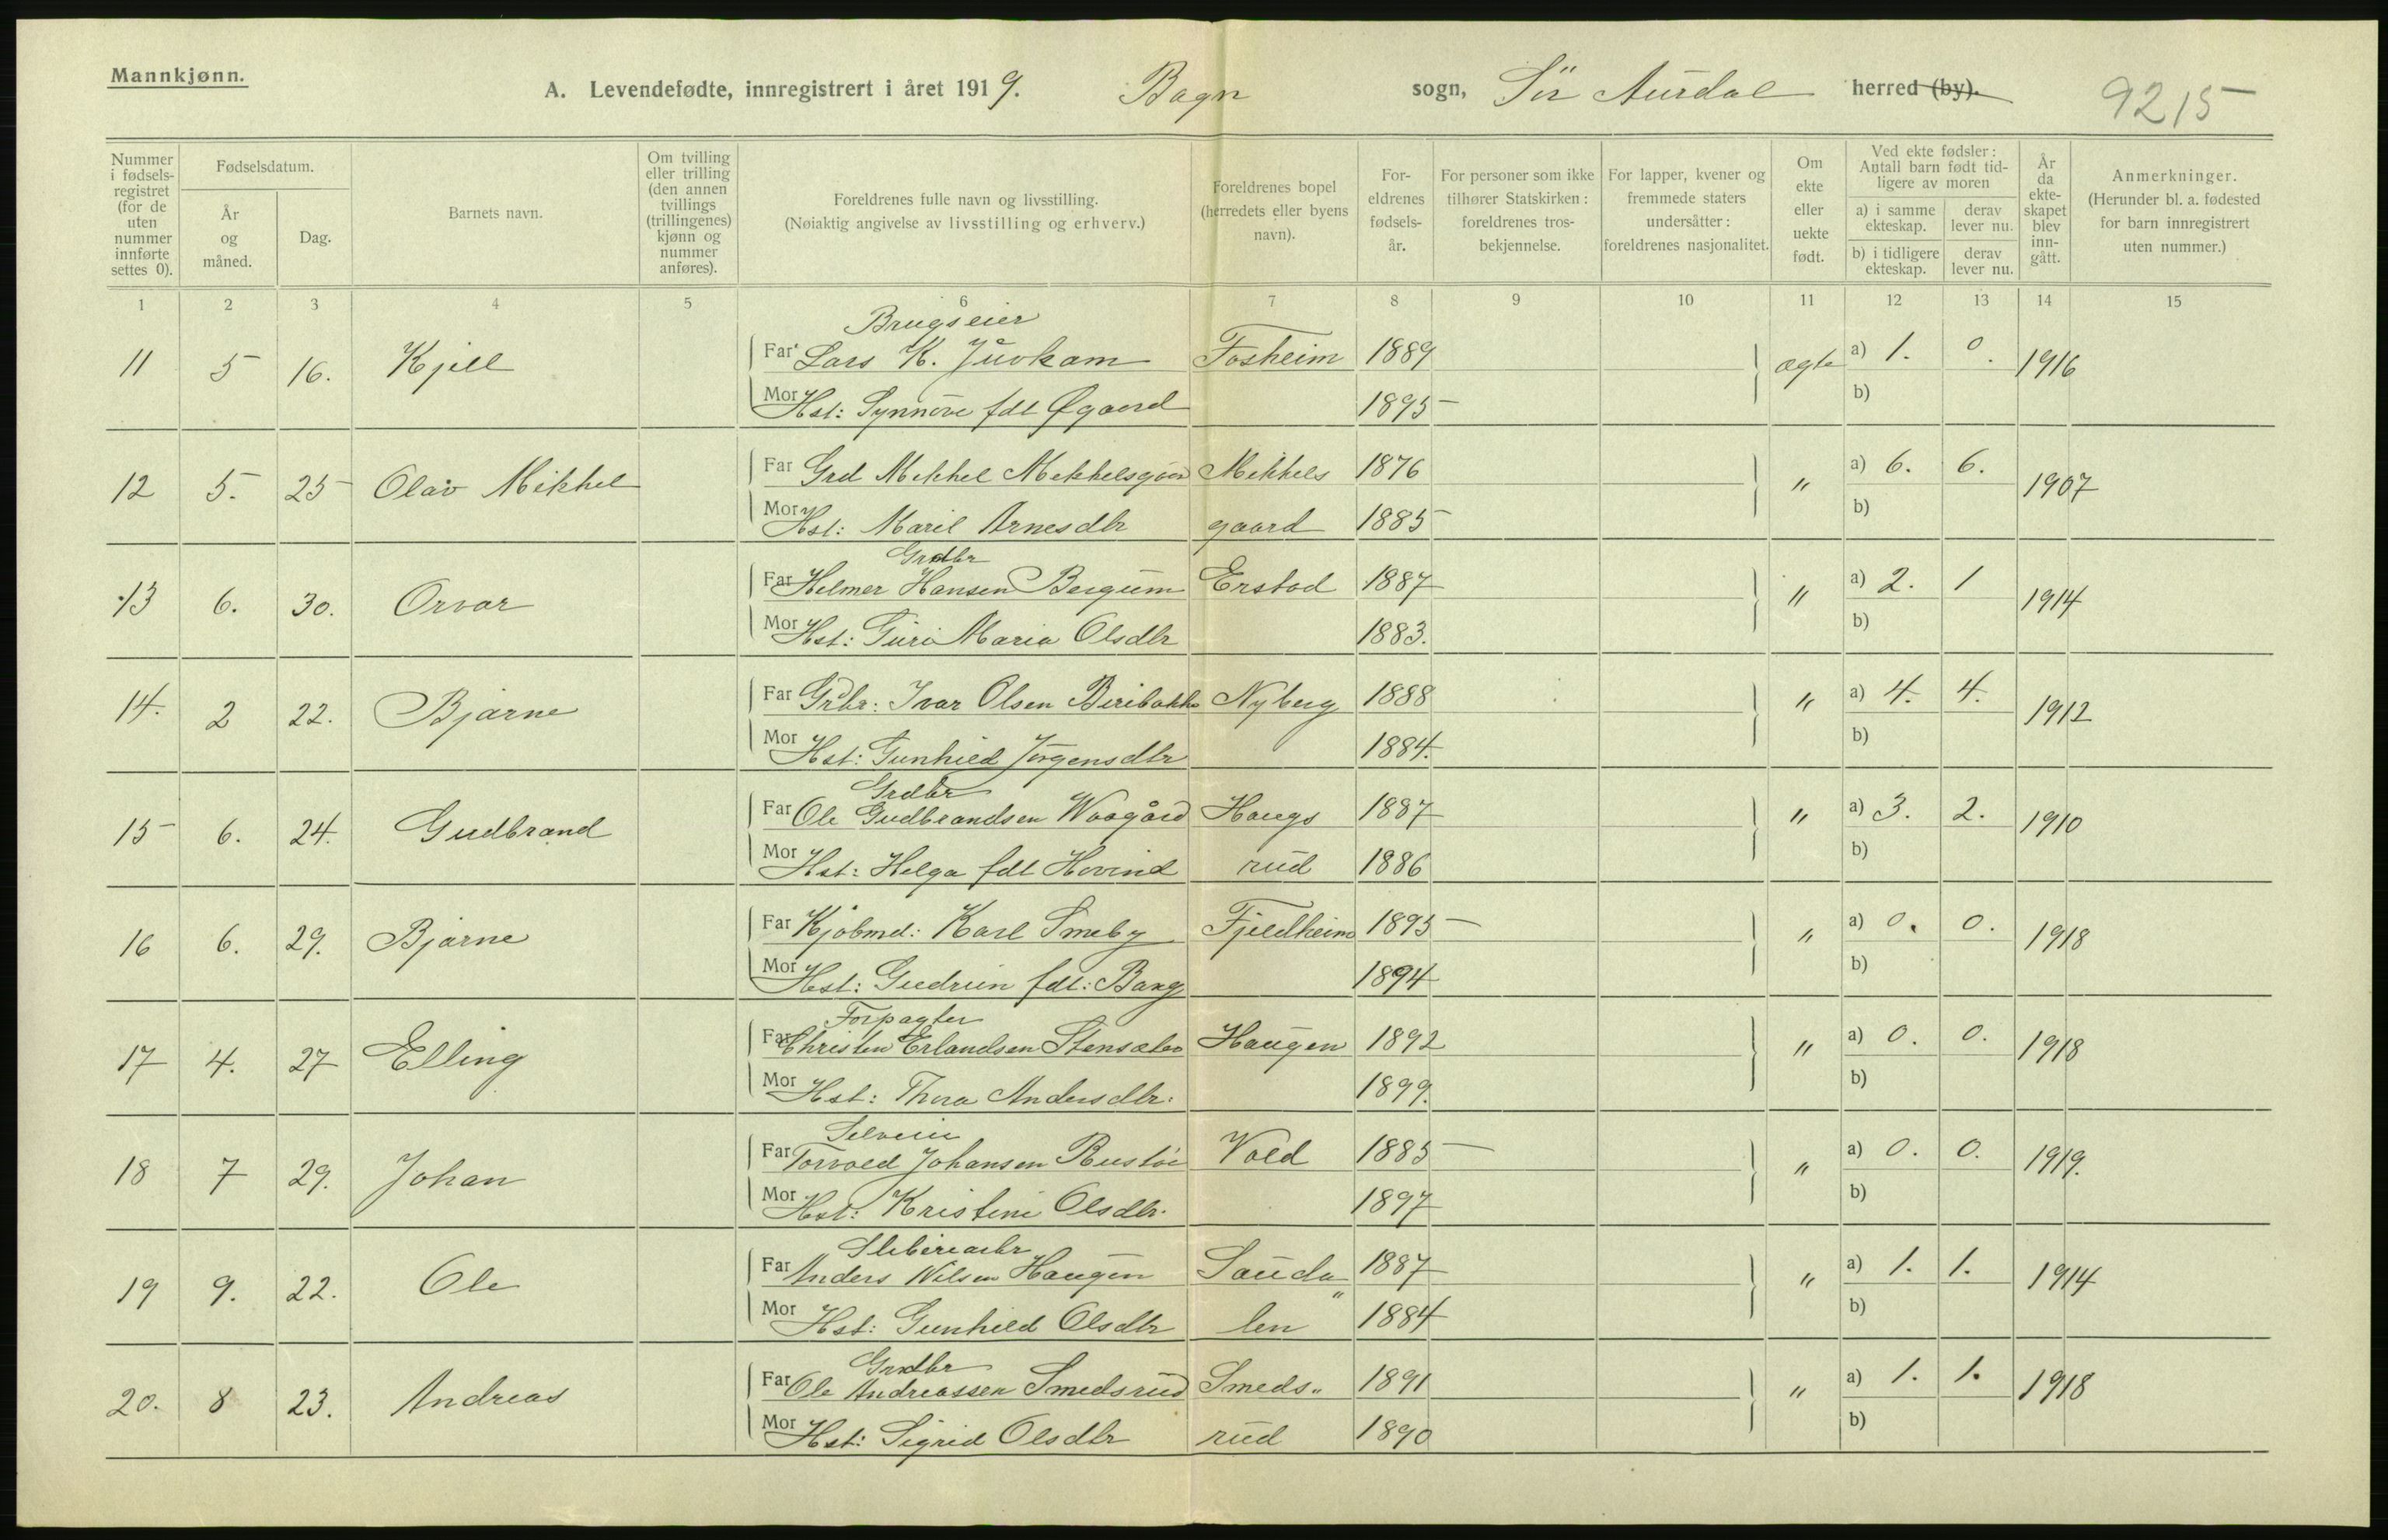 Mannkjønn.
A. Levendefødte, innregistrert i året 1919. Bagn sogn, Sör Aurdal herred (by).
9215
Nummer i fødsels-registret (for de uten nummer innførte settes 0).
Fødselsdatum.
År og måned.
Dag.
Barnets navn.
Om tvilling eller trilling (den annen tvillings (trillingenes) kjønn og nummer anføres).
Foreldrenes fulle navn og livsstilling.
(Nøiaktig angivelse av livsstilling og erhverv.)
Foreldrenes bopel (herredets eller byens navn).
For-eldrenes fødsels-år.
For personer som ikke tilhører Statskirken: foreldrenes tros-bekjennelse.
For lapper, kvener og fremmede staters undersåtter: foreldrenes nasjonalitet.
Om ekte eller uekte født.
Ved ekte fødsler: Antall barn født tid-ligere av moren
a) i samme ekteskap.
derav lever nu.
b) i tidligere ekteskap.
derav lever nu.
År da ekte-skapet blev inn-gått.
Anmerkninger.
(Herunder bl. a. fødested for barn innregistrert uten nummer.)
1 2 3 4 5 6 7 8 9 10 11 12 13 14 15
Brugseier
11 5 16. Kjell Far Lars K. Juvkam Fosheim 1889 ægte a) 1. 0. 1916
Mor Hst: Synnöve fdt Øgaard 1895 b)
12 5. 25 Olav Mikkel Far Grd Mikkel Mikkelsgaar Mikkels 1876 " a) 6. 6. 1907
Mor Hst: Marit Arnesdtr gaard 1885 b)
Grdbr
13 6. 30. Orvar Far Helmer Hansen Bergum Erstad 1887 " a) 2. 1 1914
Mor Hst: Guri Maria Olsdtr 1883. b)
14. 2 22. Bjarne Far Grbr: Ivar Olsen Beribakke Nyberg 1888 " a) 4. 4. 1912
Mor Hst: Gunhild Jörgensdtr 1884. b)
Grdbr
15 6. 24. Gudbrand Far Ole Gudbrandsen Waagård Haugs 1887 " a) 3. 2. 1910
Mor Hst: Helga fdt Hovind rud 1886 b)
16 6. 29. Bjarne Far Kjöbmd: Karl Smeby Fjeldheim 1895 " a) 0. 0. 1918
Mor Hst: Gudrun fdt: Bang 1894 b)
Forpagter
17 4. 27 Elling Far Christen Erlandsen Stensæter Haugen 1892 " a) 0. 0. 1918
Mor Hst: Thora Andersdtr: 1899. b)
Selveier
18 7 29. Johan Far Torvald Johansen Rustöe Vold 1885 " a) 0. 0. 1919.
Mor Hst: Kristine Olsdtr. 1897 b)
19 9. 22. Ole Far Anders Nilsen Haugen Sauda " 1887 " a) 1. 1. 1914
Mor Hst: Gunhild Olsdtr len 1884 b)
Grdbr
20. 8 23. Andreas Far Ole Andreassen Smedsrud Smeds" 1891 " a) 1. 1. 1918
Mor Hst: Sigrid Olsdtr rud 1890 b)